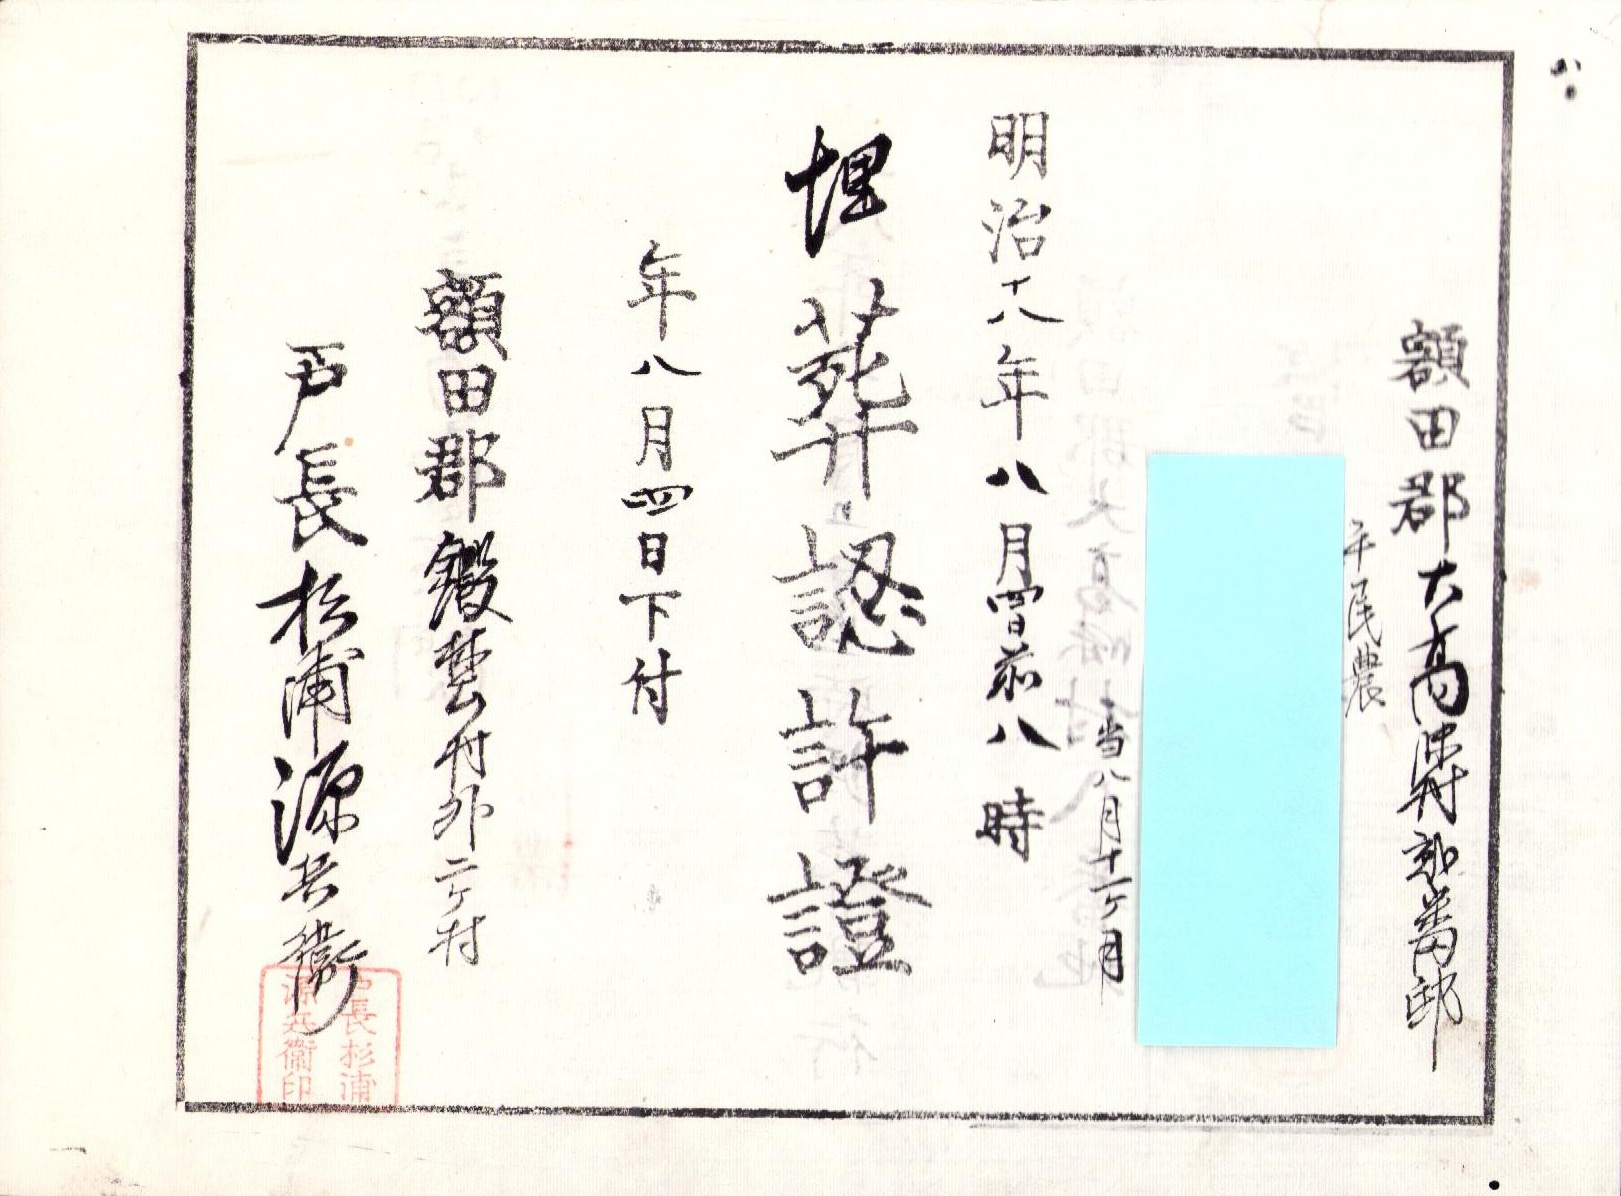 額田郡大高味村弐番邸
平民農
当八月十一ヶ月
明治十八年八月四日前八時
埋葬認許證
年八月四日下付
額田郡鍛埜村外二ヶ村
戸長杉浦源兵衛
戸長杉浦
源兵衛印